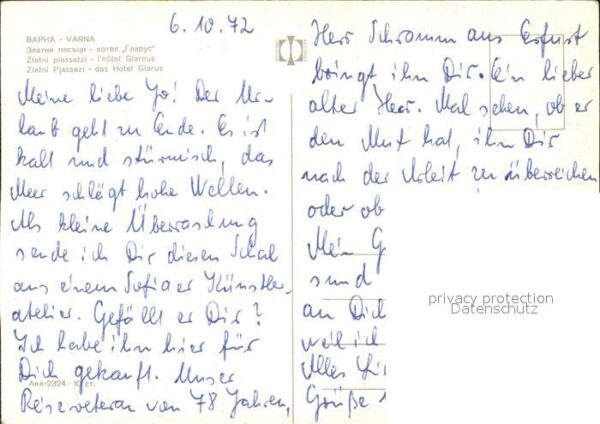 6.10.72
ВАРНА - VARNA
Златни пясъци - хотел „Гларус"
Zlatni piassatzi - l'hôtel Glarous
Zlatni Pjassazi - das Hotel Glarus
Meine liebe Yo! Der Ur-
laub geht zu Ende. Es ist
kalt und stürmisch, das
Meer schlägt hohe Wellen.
Als kleine Überraschung
sende ich Dir diesen Schal
aus einem Sofiaer Künstler-
atelier. Gefällt er Dir?
Ich habe ihn hier für
Dich gekauft. Unser
Reiseveteran von 78 Jahren,
Акл-2324 - 10 ст.
Herr Schramm aus Erfurt
bringt ihn Dir. Ein lieber
alter Herr. Mal sehen, ob er
den Mut hat, ihn Dir
nach der Arbeit zu überreichen
oder ob
Mein G
sind
an Dich
weil ich
Alles Li
Grüße
privacy protection
Datenschutz